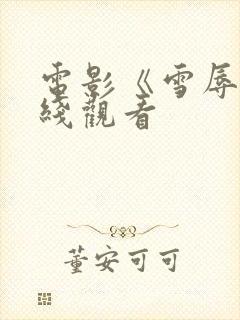 電影《雪辱
綫觀看
董安可可